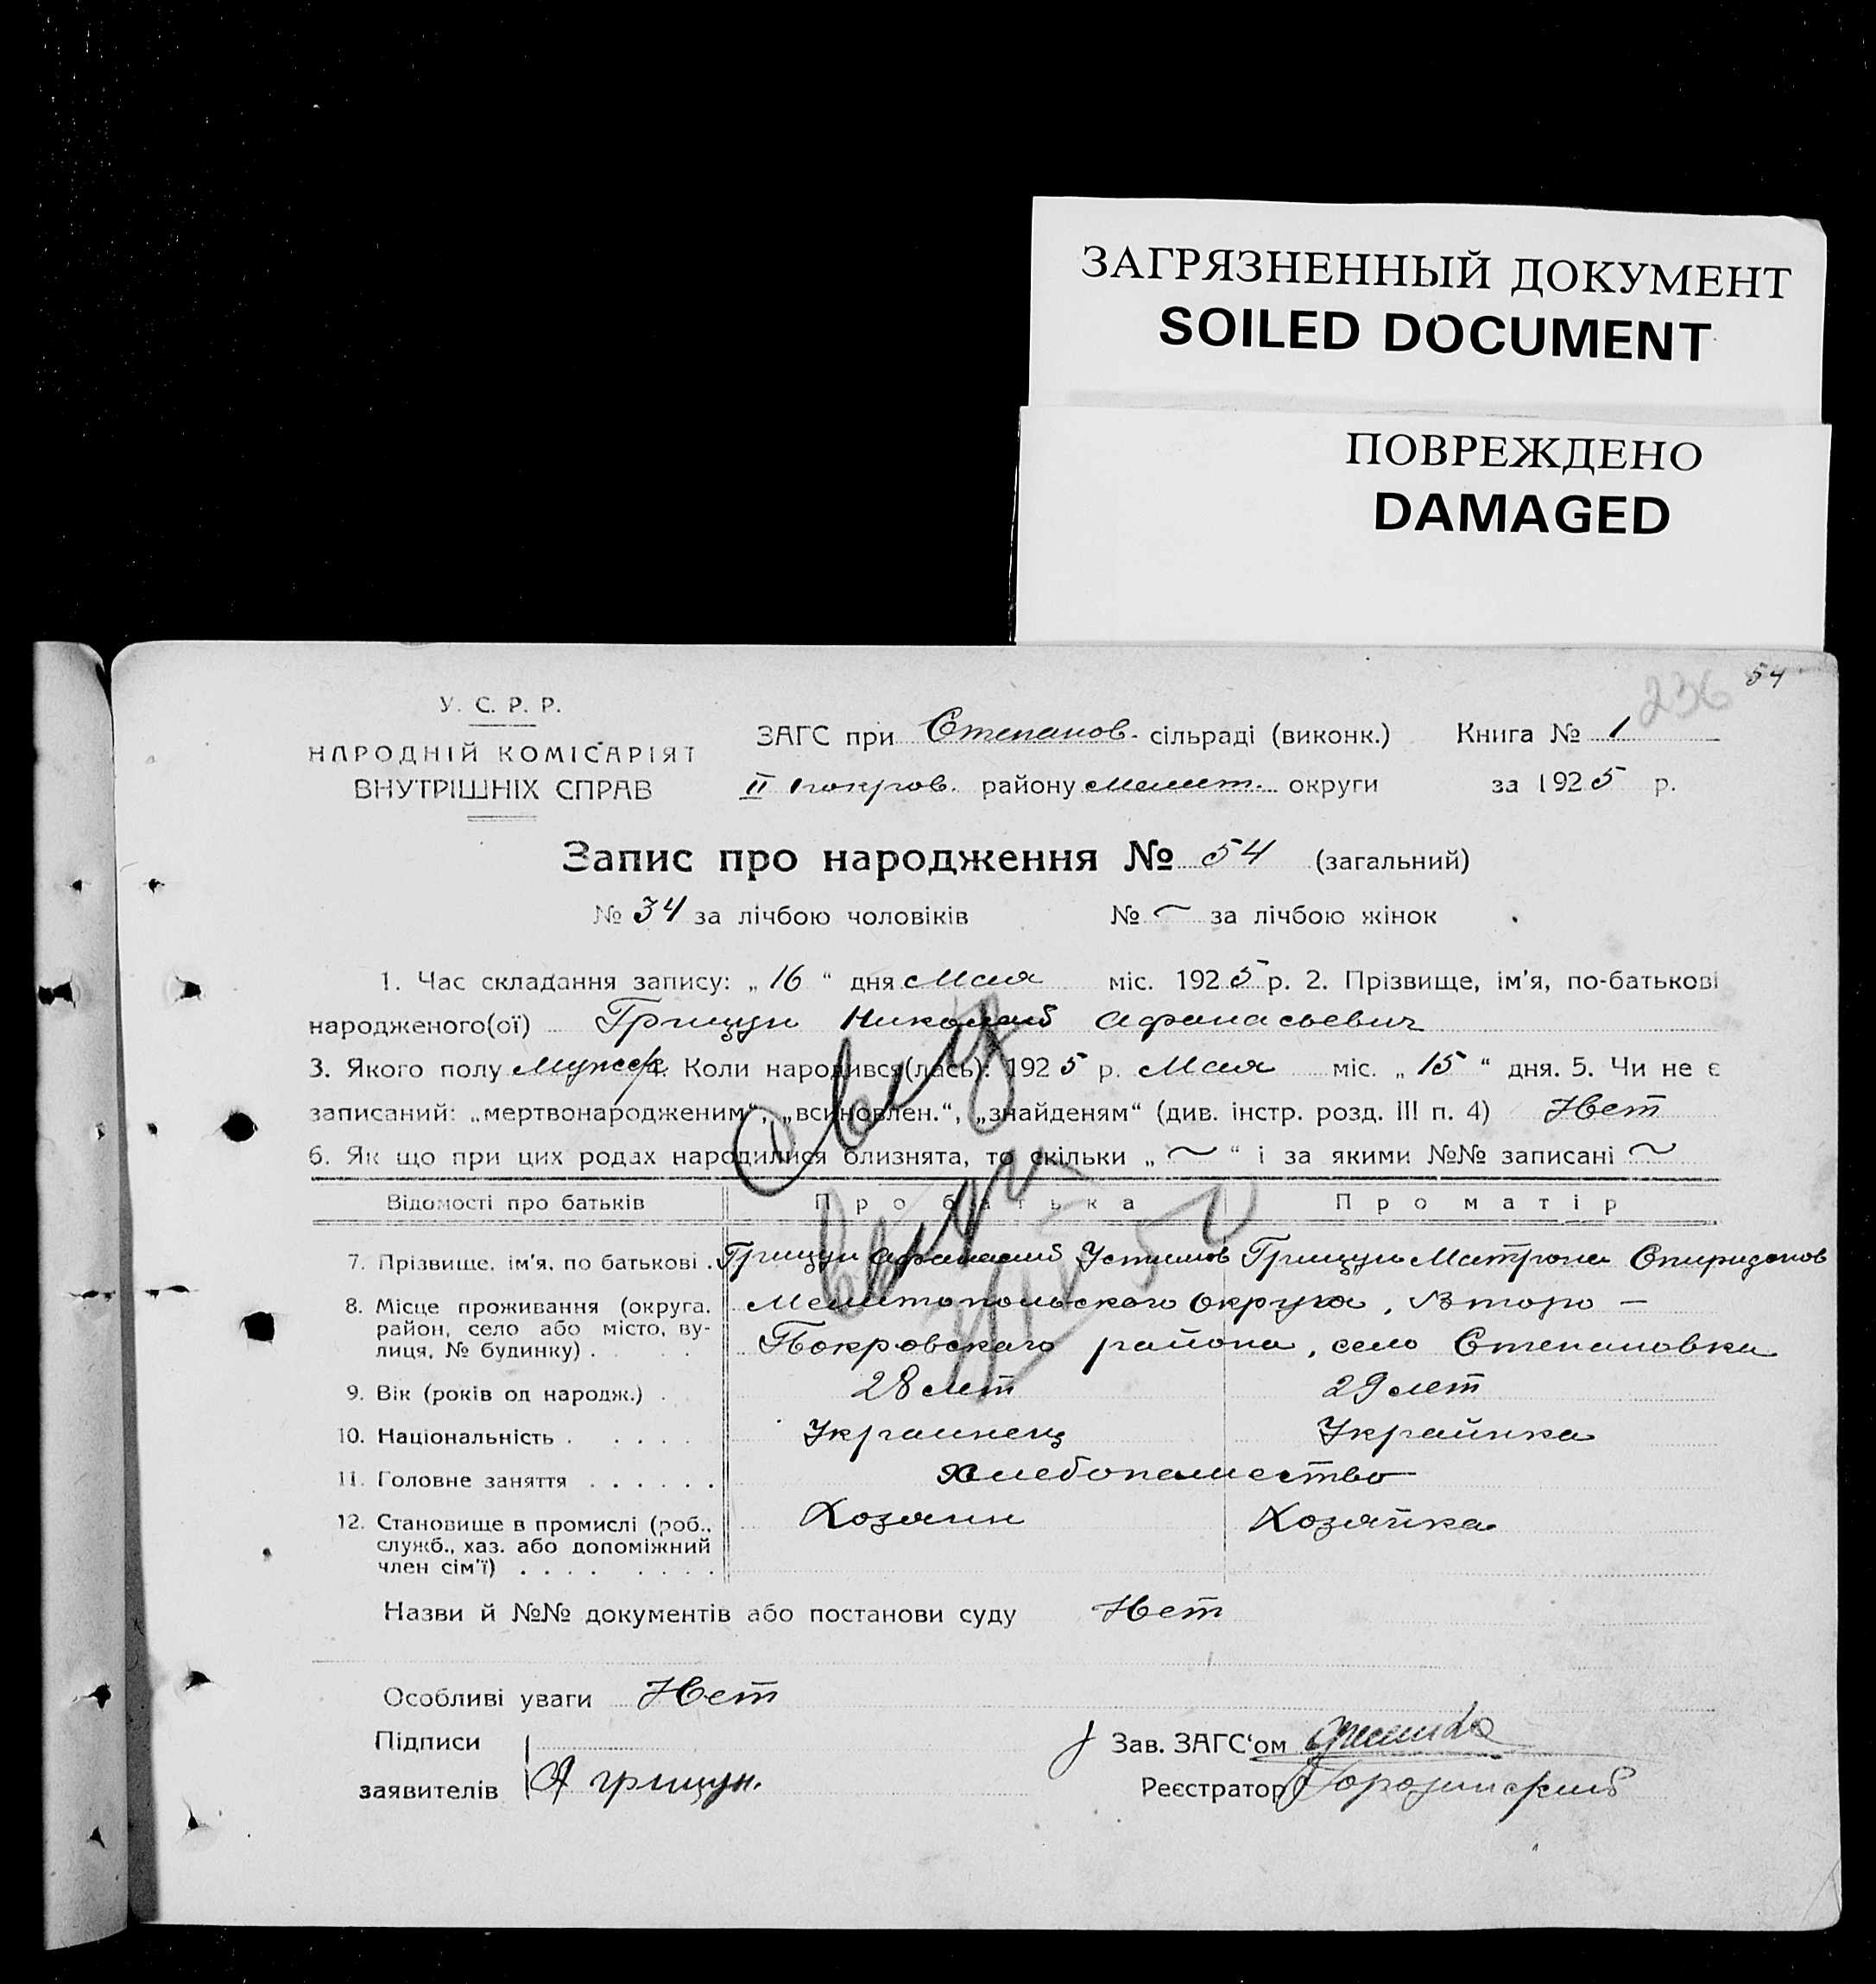 ЗАГРЯЗНЕННЫЙ ДОКУМЕНТ
SOILED DOCUMENT
ПОВРЕЖДЕНО
DAMAGED
236 54
У. С. Р. Р.
НАРОДНІЙ КОМІСАРІЯТ
ВНУТРІШНІХ СПРАВ
ЗАГС при Степанов. сільраді (виконк.) Книга № 1
II покров. району Мелит. округи за 1925 р.
Запис про народження № 54 (загальний)
№ 34 за лічбою чоловіків № ~ за лічбою жінок
1. Час складання запису: „ 16 “ дня Мая міс. 1925 р. 2. Прізвище, ім'я, по-батькові
народженого(ої) Грицун Николай Афанасьевич
3. Якого полу Мужск. 4. Коли народився(лась): 1925 р. Мая міс. „ 15 “ дня. 5. Чи не є
записаний: „мертвонародженим“, „всиновлен.“, „знайденям“ (див. інстр. розд. III п. 4) Нет
6. Як що при цих родах народилися близнята, то скільки „ ~ “ і за якими №№ записані ~
Відомості про батьків Про батька Про матір
7. Прізвище, ім'я, по батькові . Грицун Афанасий Устинов Грицун Матрона Спиридонов
8. Місце проживання (округа, район, село або місто, вулиця, № будинку) . Мелитопольского Округа, Второ —
Покровскаго района, село Степановка
9. Вік (років од народж.) . 28 лет 29 лет
10. Національність . . . . . Украинец Украйнка
11. Головне заняття . . . . . . Хлебопашество
12. Становище в промислі (роб., служб., хаз. або допоміжний член сім'ї) . . . . . . . . Хозяин Хозяйка
Назви й №№ документів або постанови суду Нет
Особливі уваги Нет
Підписи
заявителів А грицун.
Зав. ЗАГС‘ом
Реєстратор